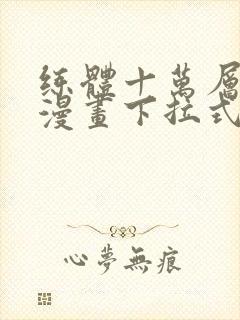 练體十萬層
漫畫下拉式
心夢無痕